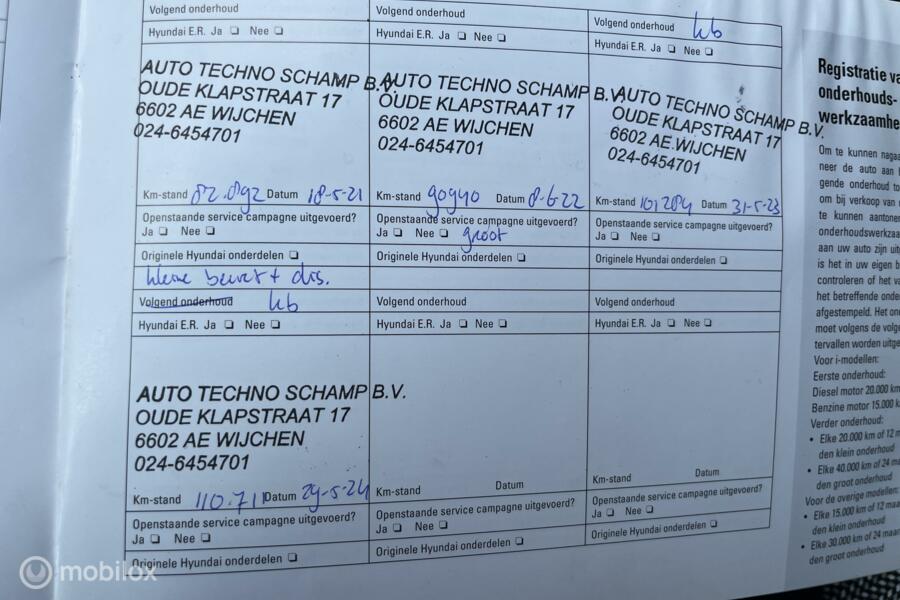 Volgend onderhoud
Hyundai E.R. Ja ☐ Nee ☐
AUTO TECHNO SCHAMP B.V.
OUDE KLAPSTRAAT 17
6602 AE WIJCHEN
024-6454701
Km-stand 82.892 Datum 18-5-21
Openstaande service campagne uitgevoerd?
Ja ☐ Nee ☐
Originele Hyundai onderdelen ☐
kleine beurt + dis.
Volgend onderhoud
Hyundai E.R. Ja ☐ Nee ☐
AUTO TECHNO SCHAMP B.V.
OUDE KLAPSTRAAT 17
6602 AE WIJCHEN
024-6454701
Km-stand 90940 Datum 8-6-22
Openstaande service campagne uitgevoerd?
Ja ☐ Nee ☐ groot
Originele Hyundai onderdelen ☐
Volgend onderhoud kb
Hyundai E.R. Ja ☐ Nee ☐
AUTO TECHNO SCHAMP B.V.
OUDE KLAPSTRAAT 17
6602 AE WIJCHEN
024-6454701
Km-stand 101284 Datum 31-5-23
Openstaande service campagne uitgevoerd?
Ja ☐ Nee ☐
Originele Hyundai onderdelen ☐
Volgend onderhoud kb
Hyundai E.R. Ja ☐ Nee ☐
AUTO TECHNO SCHAMP B.V.
OUDE KLAPSTRAAT 17
6602 AE WIJCHEN
024-6454701
Km-stand 110.711 Datum 29-5-24
Openstaande service campagne uitgevoerd?
Ja ☐ Nee ☐
Originele Hyundai onderdelen ☐
Volgend onderhoud
Hyundai E.R. Ja ☐ Nee ☐
Km-stand Datum
Openstaande service campagne uitgevoerd?
Ja ☐ Nee ☐
Originele Hyundai onderdelen ☐
Volgend onderhoud
Hyundai E.R. Ja ☐ Nee ☐
Km-stand Datum
Openstaande service campagne uitgevoerd?
Ja ☐ Nee ☐
Originele Hyundai onderdelen ☐
Registratie va
onderhouds-
werkzaamhe
Om te kunnen naga
neer de auto aan
gende onderhoud
om bij verkoop van
te kunnen aantonen
onderhoudswerkzaa
aan uw auto zijn uit
is het in uw eigen b
controleren of het v
het betreffende onde
afgestempeld. Het on
moet volgens de volge
tervallen worden uitge
Voor i-modellen:
Eerste onderhoud:
Diesel motor 20.000 k
Benzine motor 15.000 k
Verder onderhoud:
• Elke 20.000 km of 12 m
den klein onderhoud
• Elke 40.000 km of 24 maa
den groot onderhoud
Voor de overige modellen:
• Elke 15.000 km of 12 maa
den klein onderhoud
• Elke 30.000 km of 24 maan
den groot onderhoud
mobilox